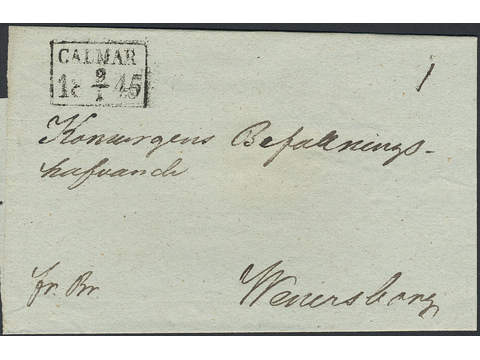 CALMAR
18 9/1 45
1
Konungens Befallnings-
hafvande
fr. Br
Wenersborg